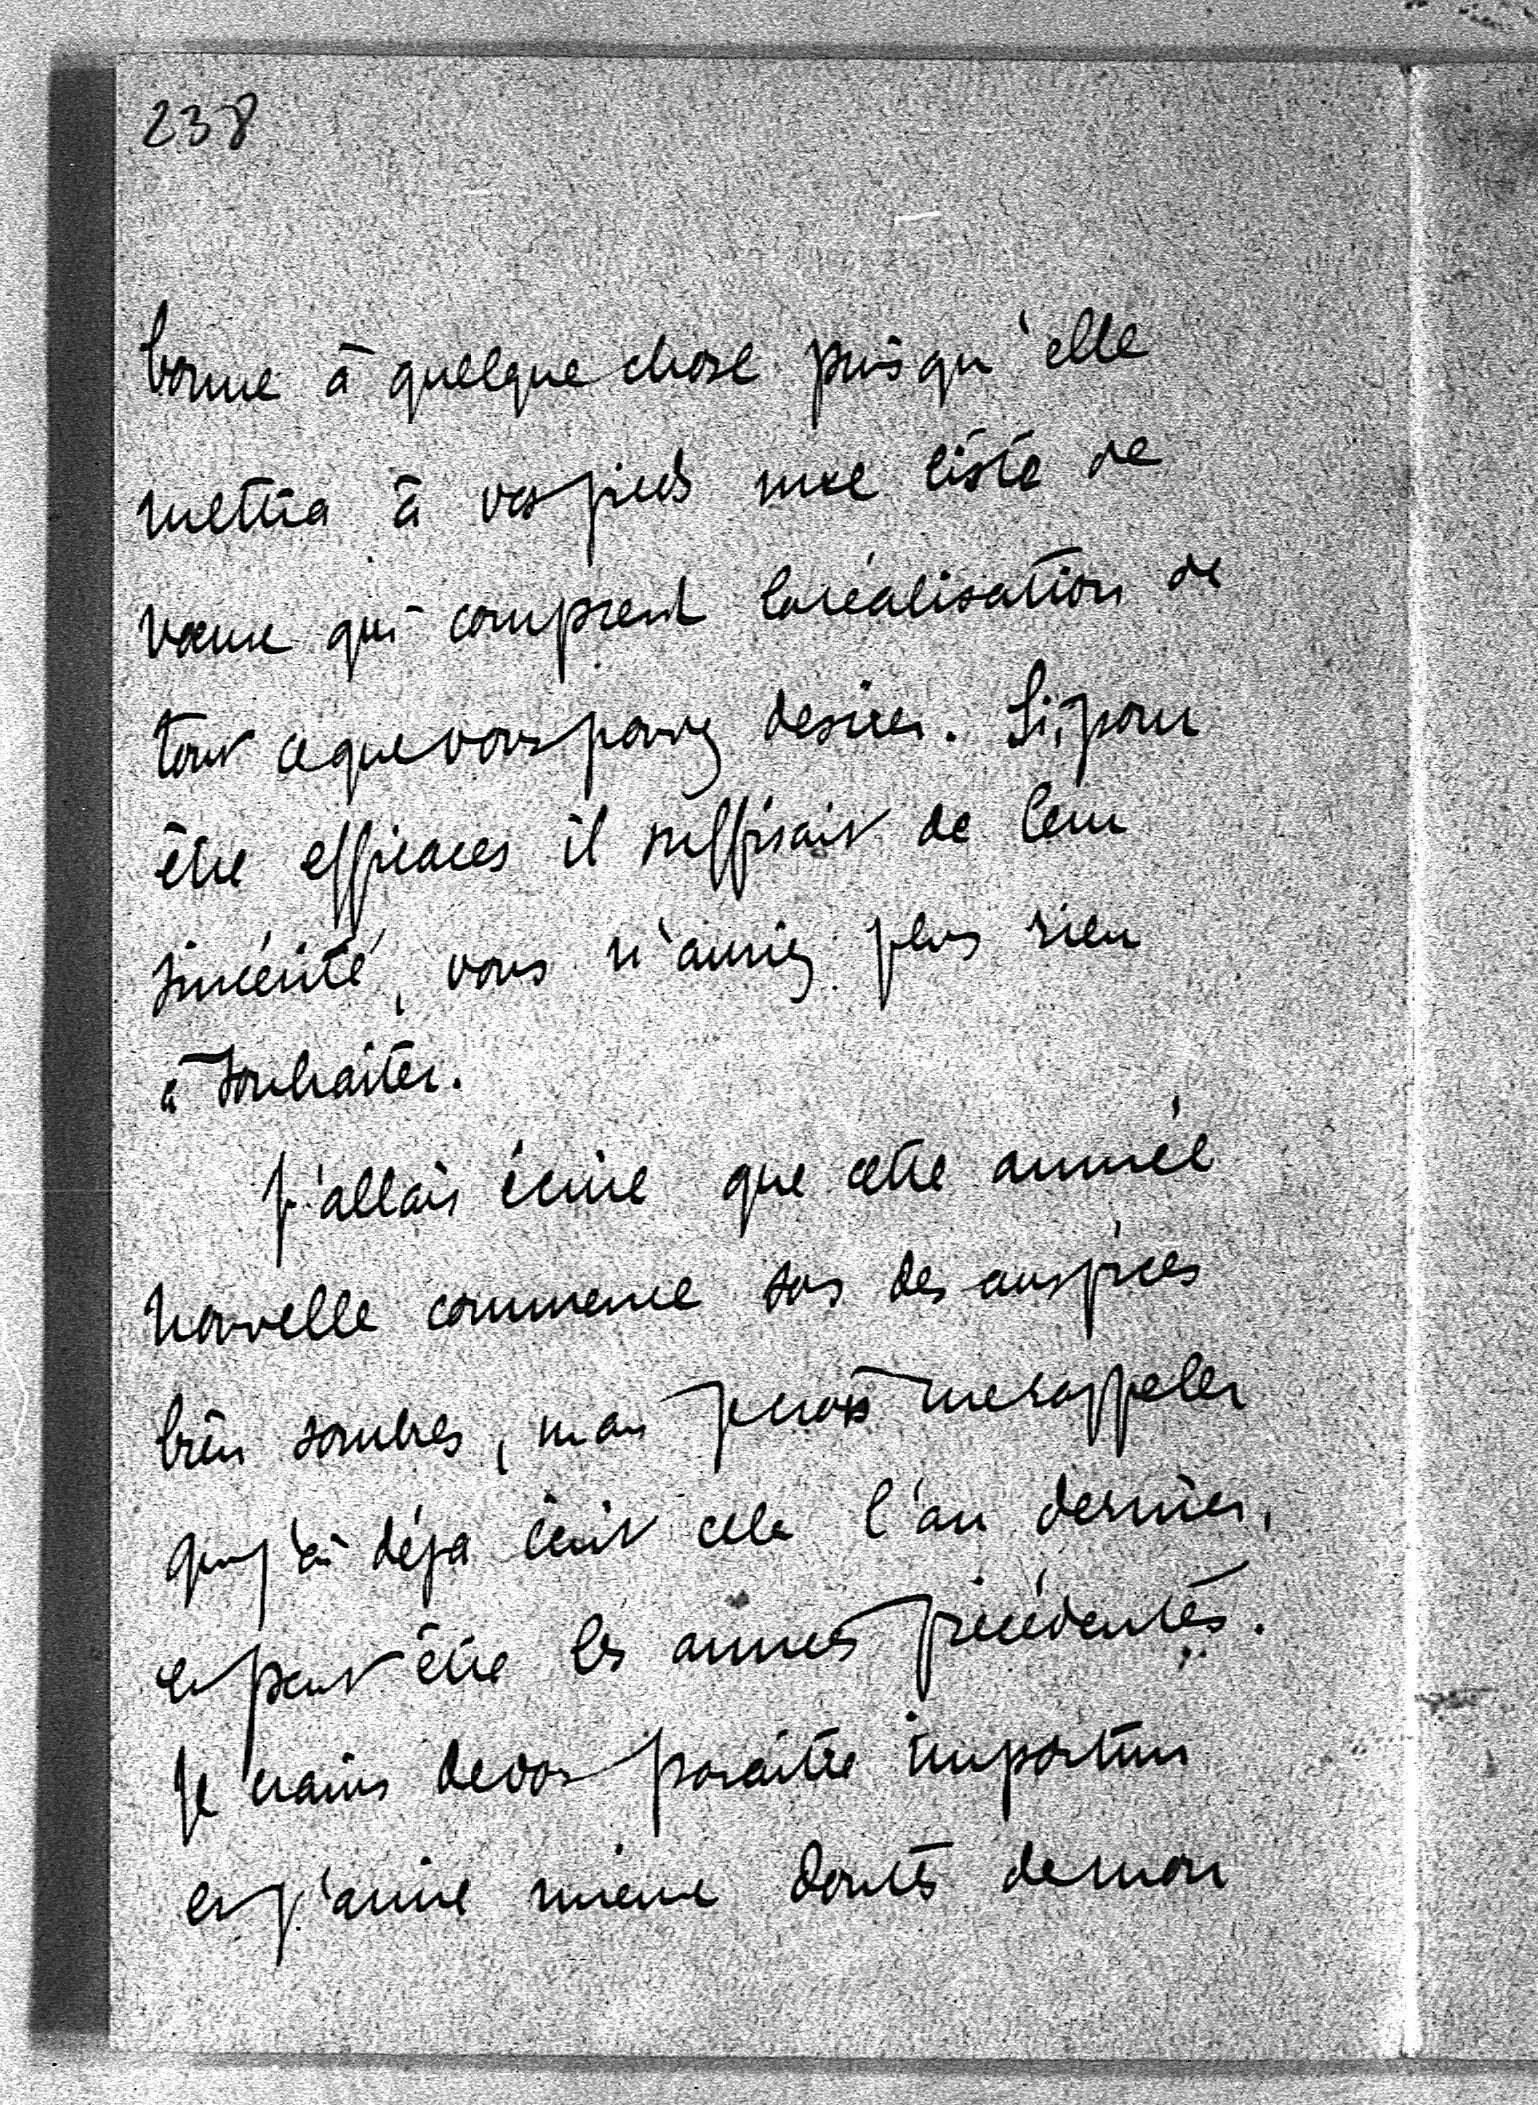 238
bonne à quelque chose puisqu'elle
mettra à vos pieds une liste de
vœux qui comprend la réalisation de
tout ce que vous pouvez desirer. Si, pour
être efficaces il suffisait de leur
sincérité, vous n'auriez plus rien
à souhaiter.
J'allais écrire que cette année
nouvelle commence sous des auspices
bien sombres, mais je crois me rappeler
que j'ai déja écrit cela l'an dernier,
et peut être les années précédentes.
Je crains de vous paraitre importun
et j'aime mieux douter de mon